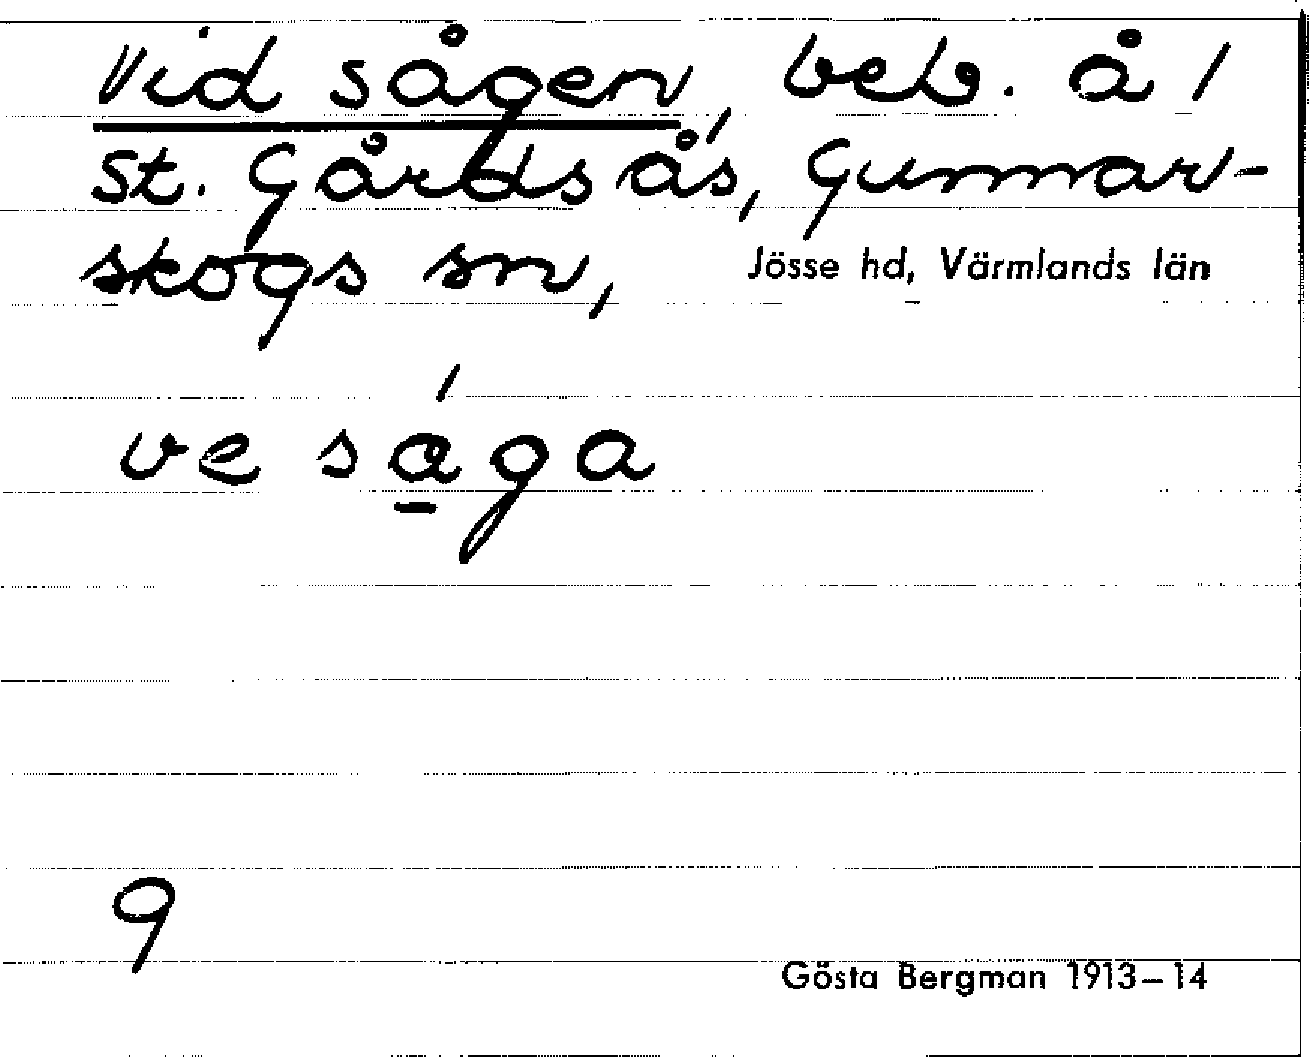 Vid sågen, beb. å 1
St. Gårdsås, Gunnar-
skogs sn, Jösse hd, Värmlands län
ve sa̱ga
9
Gösta Bergman 1913–14